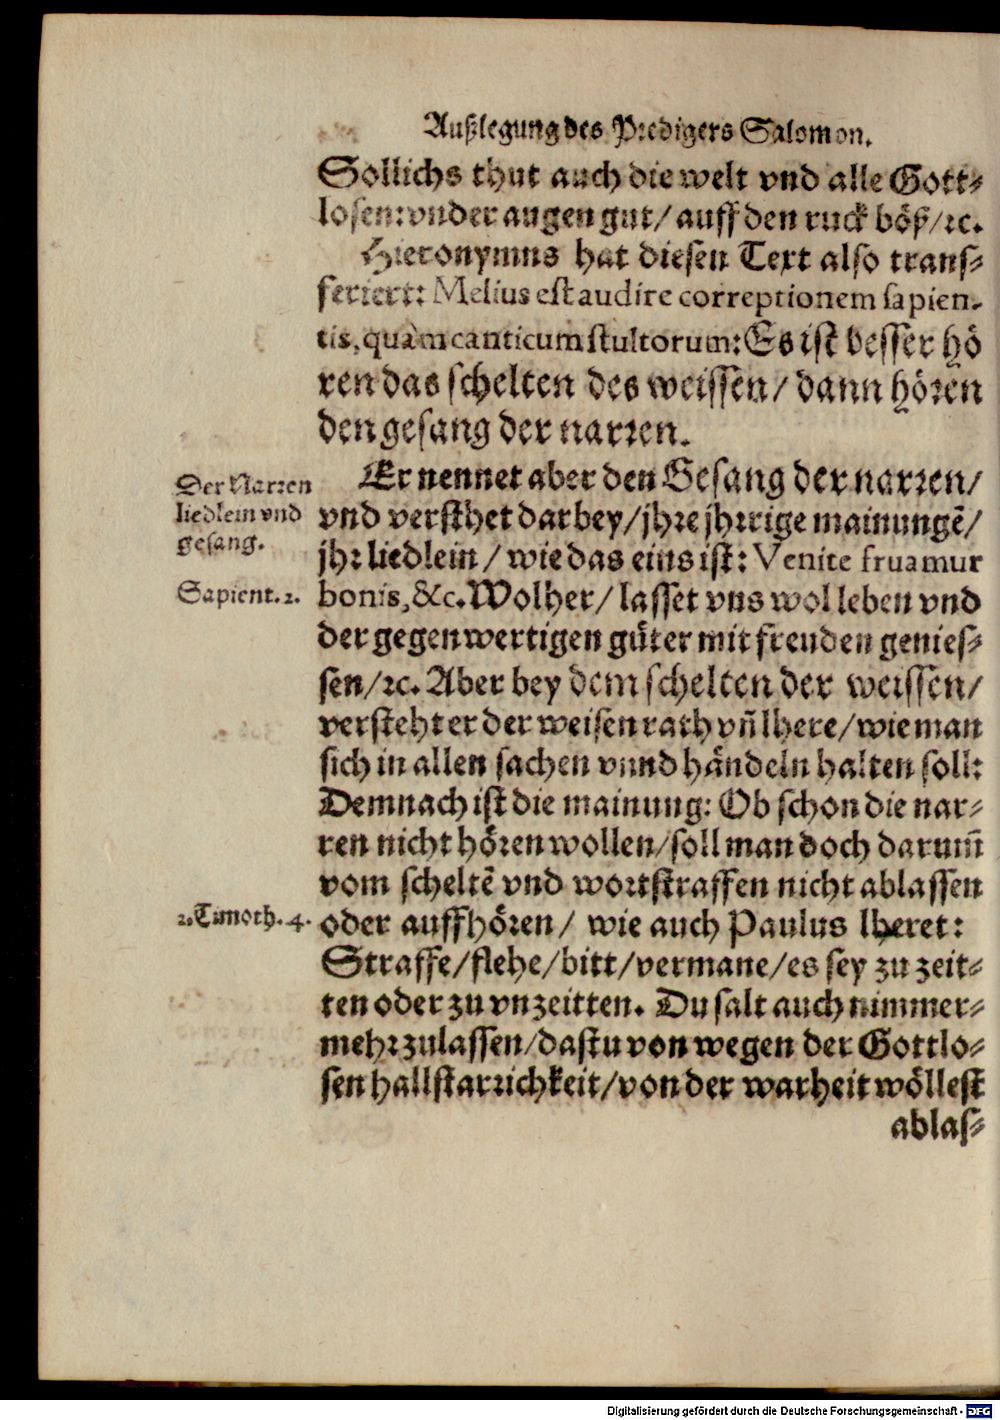 Außlegung des Predigers Salomon.
Sollichs thut auch die welt vnd alle Gott⸗
losen: vnder augen gut/ auff den ruck böß/ ꝛc.
Hieronymus hat diesen Text also trans⸗
feriert: Melius est audire correptionem sapien-
tis, quàm canticum stultorum: Es ist besser hö
ren das schelten des weissen/ dann hören
den gesang der narren.
Er nennet aber den Gesang der narren/
vnd versthet darbey/ jhre jhrrige mainungē/
jhr liedlein/ wie das eins ist: Venite fruamur
bonis, &c. Wolher/ lasset vns wol leben vnd
der gegenwertigen gůter mit freuden genies⸗
sen/ ꝛc. Aber bey dem schelten der weissen/
versteht er der weisen rath vñ lhere/ wie man
sich in allen sachen vnnd händeln halten soll:
Demnach ist die mainung: Ob schon die nar⸗
ren nicht hören wollen/ soll man doch darum̃
vom scheltē vnd wortstraffen nicht ablassen
oder auffhören/ wie auch Paulus lheret:
Straffe/ flehe/ bitt/ vermane/ es sey zu zeit⸗
ten oder zu vnzeitten. Du salt auch nimmer⸗
mehr zulassen/ dastu von wegen der Gottlo⸗
sen hallstarrichkeit/ von der warheit wöllest
ablas⸗
Der Narren
liedlein vnd
gesang.
Sapient. 2.
2. Timoth. 4.
Digitalisierung gefördert durch die Deutsche Forschungsgemeinschaft - DFG